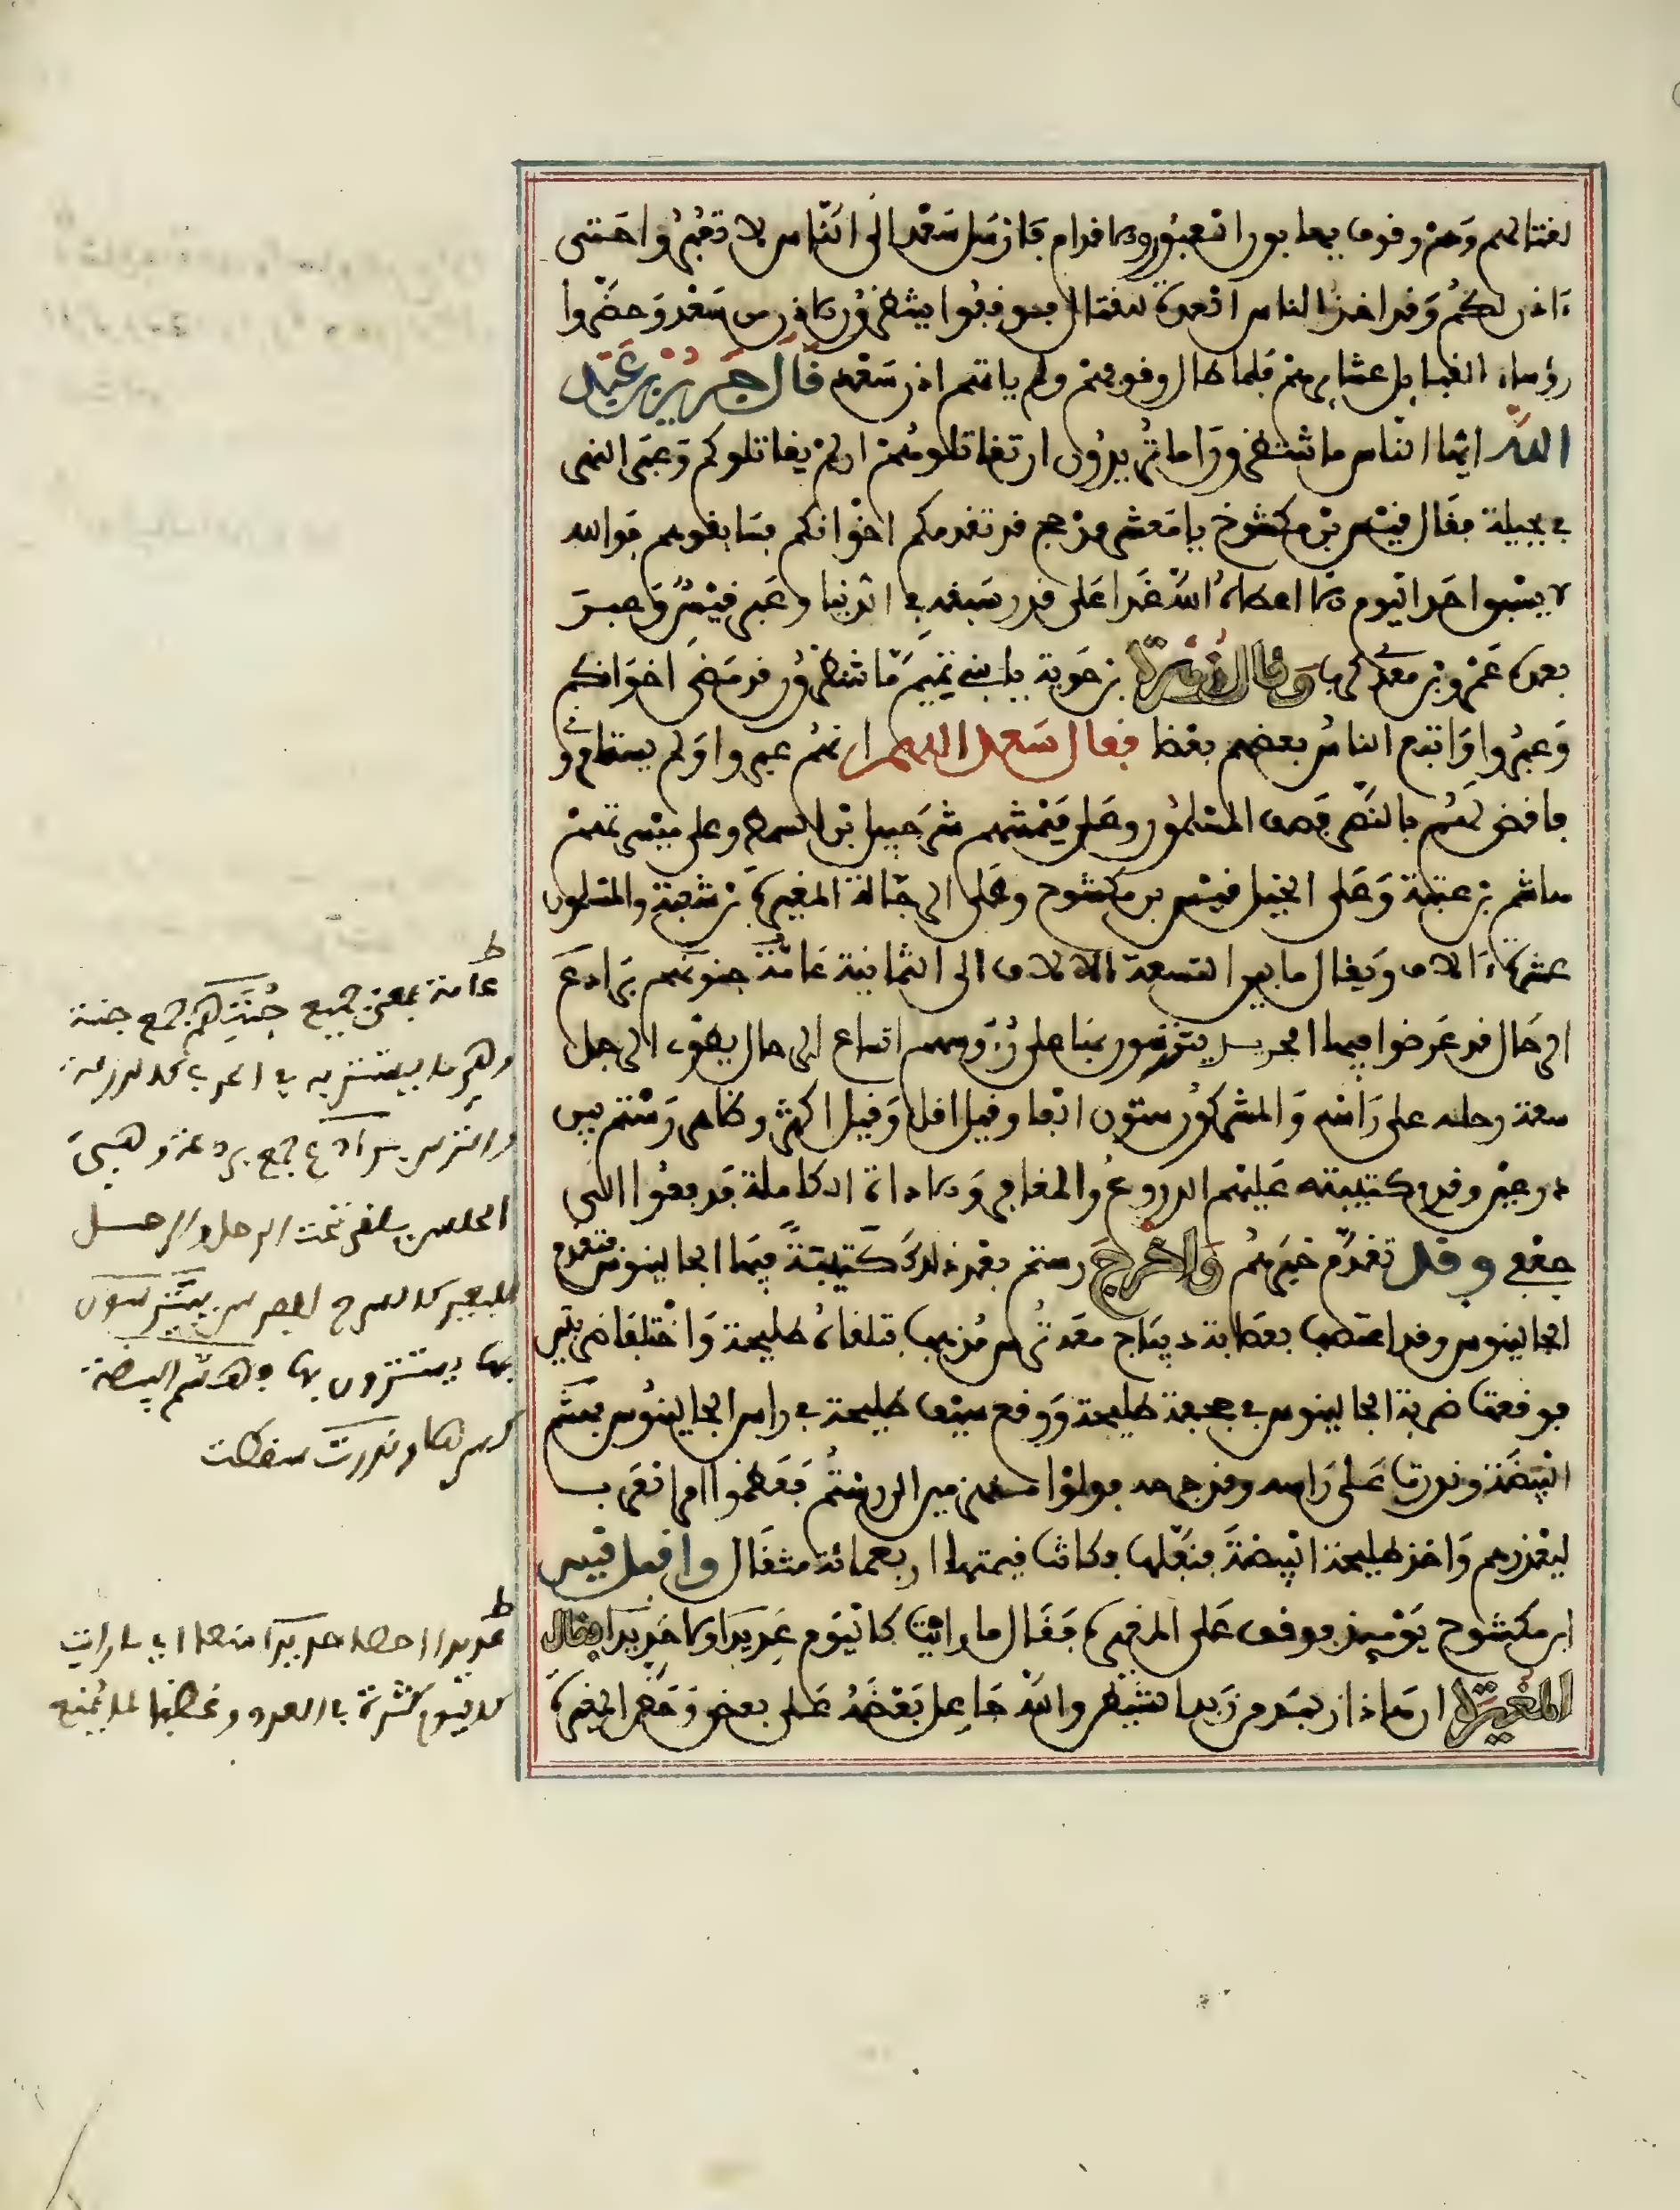 لقتالهم وهم وقوف بها بور العبور والاقدام فارسل سعد الى الناس لا تعبروا حتى
ءاذن لكم وقد اخذ الناس العدة للقتال فوقفوا ينتظرون الاذن من سعد وحضوا
رؤساء القبايل عشايرهم فلما طال وقوفهم ولم ياتهم اذن سعد قال جرير بن عبد
الله ايها الناس ما تنتظرون اما تريدون ان تقاتلوهم او لم يقاتلوكم وعبر النهر
في بجيلة فقال قيس بن مكشوح يا معشر مذحج قد تقدمكم اخوانكم فسابقوهم فوالله
لا يسبق احد اليوم الا اعطاه الله غدا على قدر سبقه في الدنيا وعبر قيس وعبر
بعده عمرو بن معدي كرب وقال زهرة بن حوية يا بني تميم ما تنتظرون قد مضى اخوانكم
وعبروا واتبع الناس بعضهم بعضا فقال سعد اللهم انهم عبروا ولم يستامروا
فاقض لهم بالنصر فصف المسلمون وعلى ميمنتهم شرحبيل بن السمط وعلى ميسرتهم
هاشم بن عتبة وعلى الخيل قيس بن مكشوح وعلى الرجالة المغيرة بن شعبة والمسلمون
عشرة ءالاف ويقال ما بين التسعة الالاف الى الثمانية عامة جنونهم برادع
الرحال قد عرضوا فيها الجريد يترسون بها على رؤوسهم اتساع الرحال يطوى الرجل
سعة رحله على راسه والمشركون ستون الفا وقيل اقل وقيل اكثر وظاهر رستم بين
درعين وفي كتيبته عليهم الدروع والمغافر والاداة الكاملة قد دفعوا اللى
جعفي وقد تقدم خبرهم واخرج رستم بعد ذلك كتيبة فيها الجالينوس فتقدم
الجالينوس وقد اعتصب بعصابة ديباج معه ترس مذهب فتلقاه طليحة واختلفا ضربتين
فوقعت ضربة الجالينوس في جحفة طليحة ووقع سيف طليحة في راس الجالينوس فهشم
البيضة وندرت على راسه وقد جرحه فولوا منهزمين الى رستم فعظموا امر العرب
ليعذرهم واخذ طليحة البيضة فنفلها وكانت قيمتها اربعمائة مثقال واقبل قيس
ابن مكشوح يومئذ فوقف على المغيرة فقال ما رايت كاليوم عديدا ولا حديدا فقال
المغيرة ان هاذا زبد من زبد الشيطان والله جاعل بعضه على بعض وحض المغيرة
ط
عامة بمعنى جميع جننهم جمع جنة
وهي ما يستتر به في الحرب كالدرقة
والترس برادع جمع بردعة وهي
الحلس يلقى تحت الرحل والرحل
للبعير كالسرج للفرس يتترسون
بها يستترون بها فهشم البيضة
كسرها وندرت سقطت
ط
عديدا حديدا اي ما رايت
كاليوم كثرة في العدد